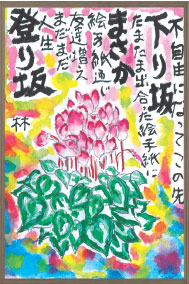 不自由になってこの先
下り坂
たまたま出合った絵手紙に
まさか
絵手紙通じ
友達増え
まだまだ
人生
登り坂
林